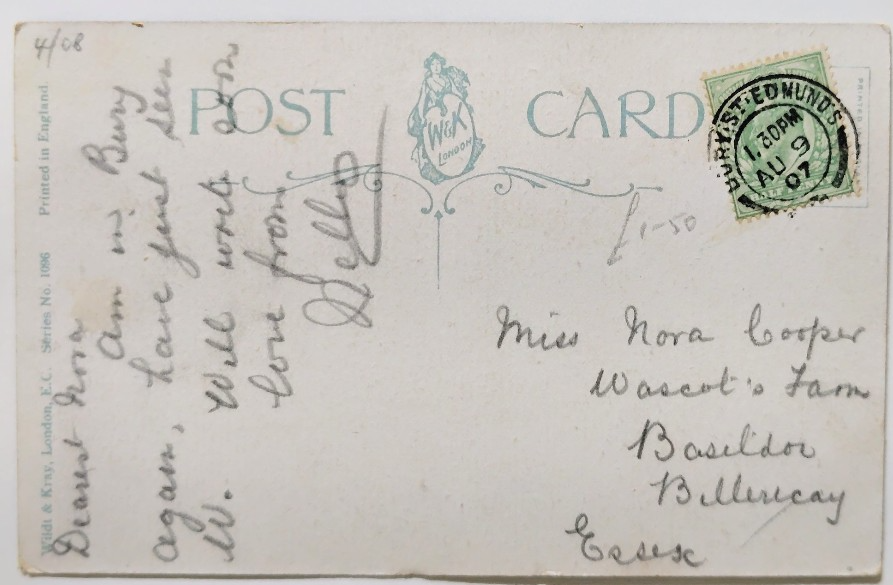 4/08
POST CARD
W&K
LONDON
PRINTED
BURY ST. EDMUNDS
1.30PM
AU 9
07
£1-50
Wildt & Kray, London, E.C. Series No. 1096 Printed in England.
Dearest Nora
Am in Bury
again, have just seen
W. Will write soon
Love from
Nellie
Miss Nora Cooper
Wascot's Farm
Basildon
Billericay
Essex